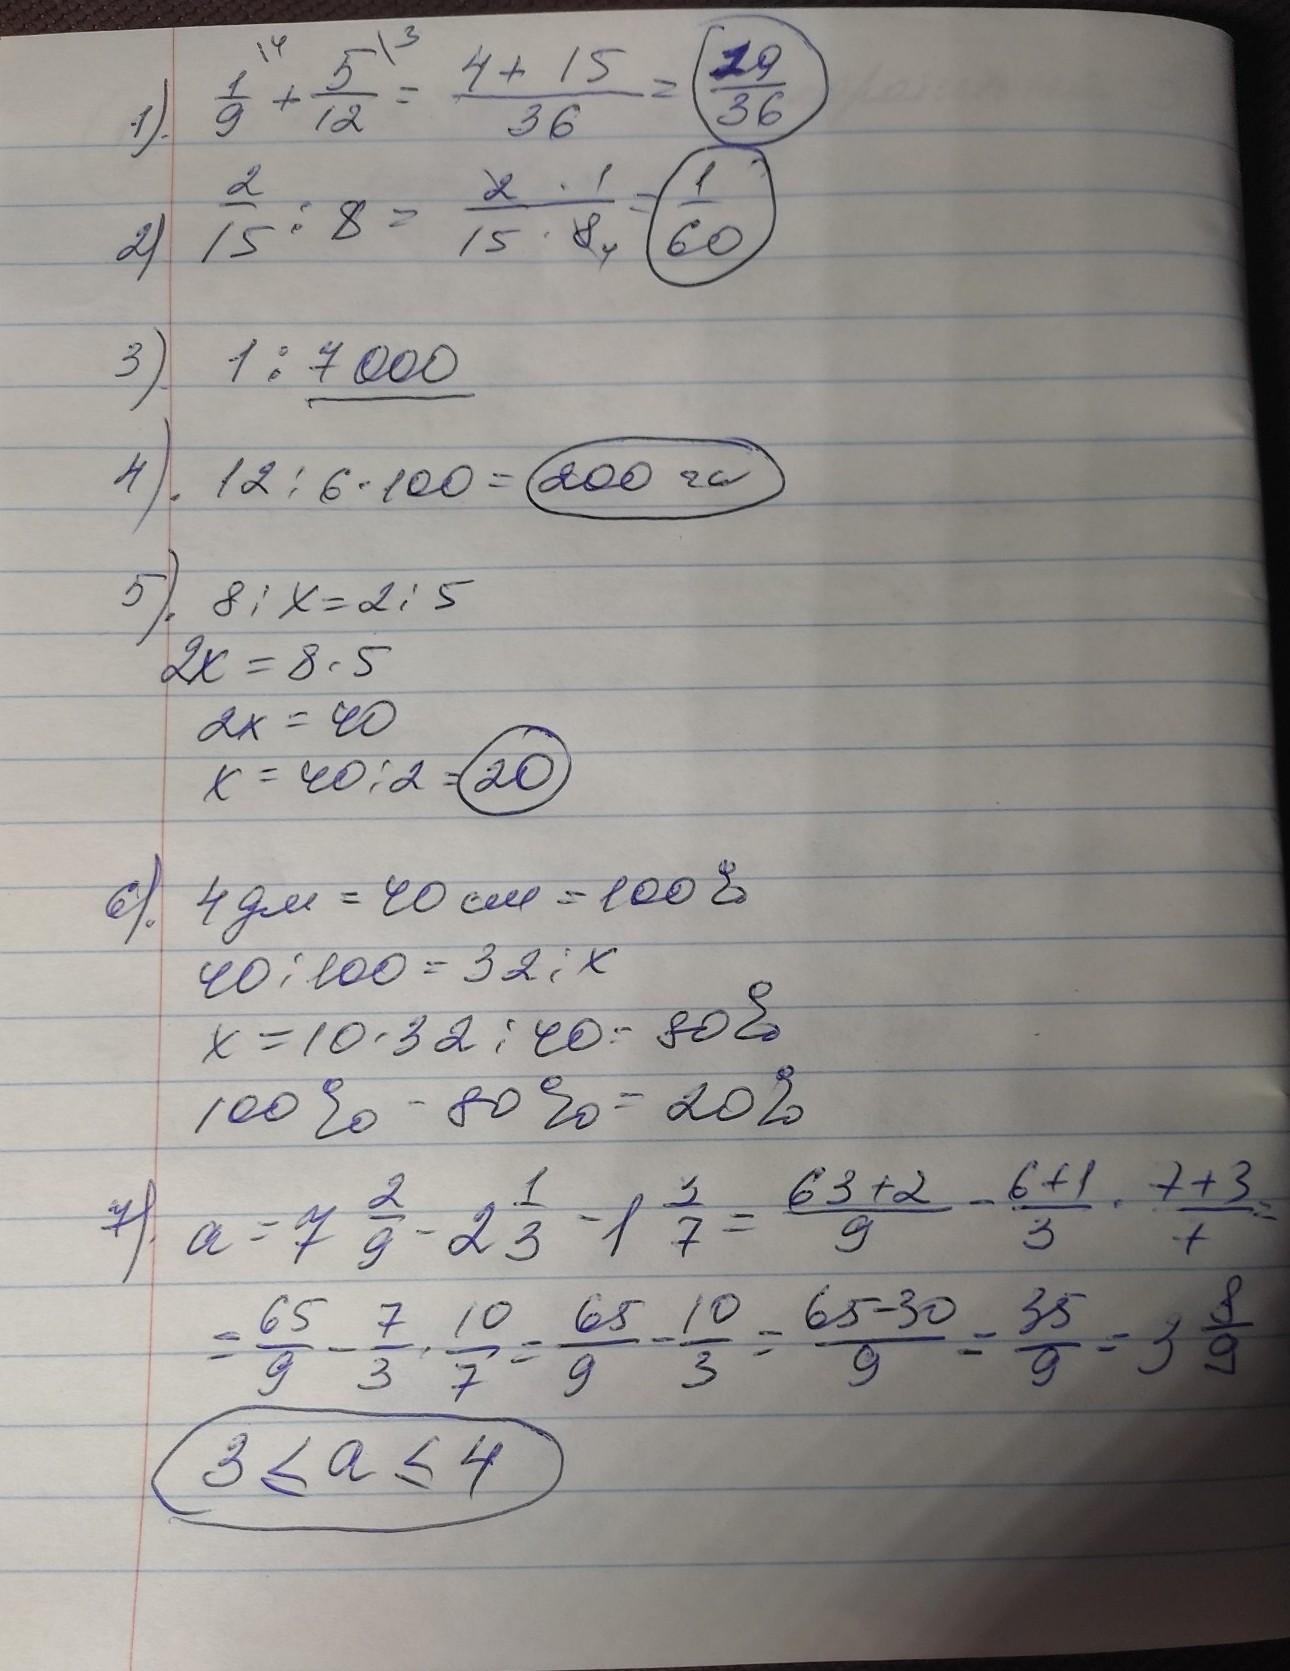 1). 1/9 \4 + 5/12 \3 = (4 + 15)/36 = 19/36
2) 2/15 : 8 = (2 · 1)/(15 · 8 4) = 1/60
3) 1 : 7000
4). 12 : 6 · 100 = 200 га
5). 8 : x = 2 : 5
2x = 8 · 5
2x = 40
x = 40 : 2 = 20
6). 4 дм = 40 см = 100%
40 : 100 = 32 : x
x = 10 · 32 : 40 = 80%
100% - 80% = 20%
7). a = 7 2/9 - 2 1/3 - 1 3/7 = (63+2)/9 - (6+1)/3 · (7+3)/7 =
= 65/9 - 7/3 · 10/7 = 65/9 - 10/3 = (65-30)/9 = 35/9 = 3 8/9
3 ≤ a ≤ 4